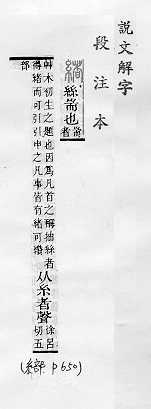 說文解字
段注本
緒 絲耑也 耑者
艸木初生之題也因爲凡首之偁抽絲者
得緒而可引引申之凡事皆有緒可纘
从糸者聲 徐呂切五
部
(糸部 p650)